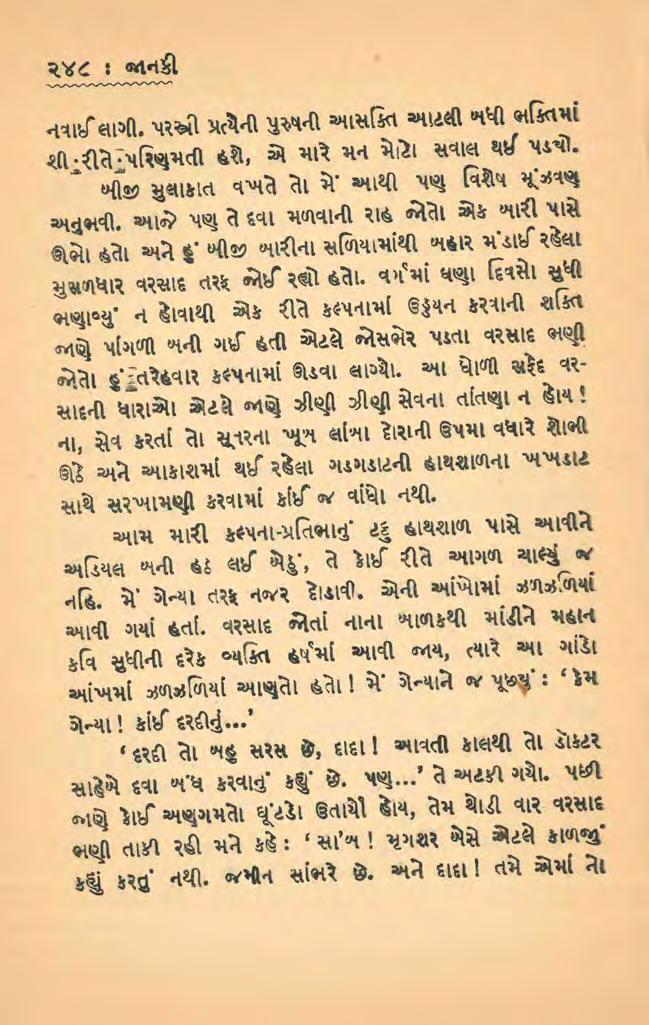 ૨૪૮ : જાનકી
નવાઈ લાગી. પરસ્ત્રી પ્રત્યેની પુરુષની આસક્તિ આટલી બધી ભક્તિમાં
શી રીતે પરિણમતી હશે, એ મારે મન મોટો સવાલ થઈ પડ્યો.
બીજી મુલાકાત વખતે તો મેં આથી પણ વિશેષ મૂંઝવણ
અનુભવી. આજે પણ તે દવા મળવાની રાહ જોતો એક બારી પાસે
ઊભો હતો અને હું બીજી બારીના સળિયામાંથી બહાર મંડાઈ રહેલા
મુસળધાર વરસાદ તરફ જોઈ રહ્યો હતો. વર્ગમાં ઘણા દિવસો સુધી
ભણાવ્યું ન હોવાથી એક રીતે કલ્પનામાં ઉડ્ડયન કરવાની શક્તિ
જાણે પાંગળી બની ગઈ હતી એટલે જોસભેર પડતા વરસાદ ભણી
જોતો હું તરેહવાર કલ્પનામાં ઊડવા લાગ્યો. આ ધોળી સફેદ વર-
સાદની ધારાઓ એટલે જાણે ઝીણી ઝીણી સેવના તાંતણા ન હોય !
ના, સેવ કરતાં તો સૂતરના ખૂબ લાંબા દોરાની ઉપમા વધારે શોભી
ઊઠે અને આકાશમાં થઈ રહેલા ગડગડાટની હાથશાળના ખખડાટ
સાથે સરખામણી કરવામાં કાંઈ જ વાંધો નથી.
આમ મારી કલ્પના-પ્રતિભાનું ટટ્ટુ હાથશાળ પાસે આવીને
અડિયલ બની હઠ લઈ બેઠું, તે કોઈ રીતે આગળ ચાલ્યું જ
નહિ. મેં ગેન્યા તરફ નજર દોડાવી. એની આંખોમાં ઝળઝળિયાં
આવી ગયાં હતાં. વરસાદ જોતાં નાના બાળકથી માંડીને મહાન
કવિ સુધીની દરેક વ્યક્તિ હર્ષમાં આવી જાય, ત્યારે આ ગાંડો
આંખમાં ઝળઝળિયાં આણતો હતો ! મેં ગેન્યાને જ પૂછ્યું : ‘ કેમ
ગેન્યા ! કાંઈ દરદીનું...’
‘ દરદી તો બહુ સરસ છે, દાદા ! આવતી કાલથી તો ડૉક્ટર
સાહેબે દવા બંધ કરવાનું કહ્યું છે. પણ...’ તે અટકી ગયો. પછી
જાણે કોઈ અણગમતો ઘૂંટડો ઉતાર્યો હોય, તેમ થોડી વાર વરસાદ
ભણી તાકી રહી મને કહે : ‘ સા’બ ! મૃગશર બેસે એટલે કાળજું
કહ્યું કરતું નથી. જમીન સાંભરે છે. અને દાદા ! તમે એમાં નો